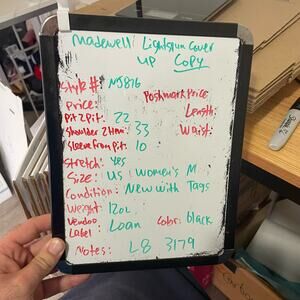 Madewell Lightspun Cover
UP Copy
Style #: NJ816
Poshmark Price
Price: Length:
Pit 2 Pit: 22 Waist:
Shoulder 2 Hem: 33
Sleeve from Pit: 10
Stretch: Yes
Size: US | Women's M
Condition: New with Tags
Weight 12oz
Vendoo Label: Loan Color: black
Notes: L8 3179